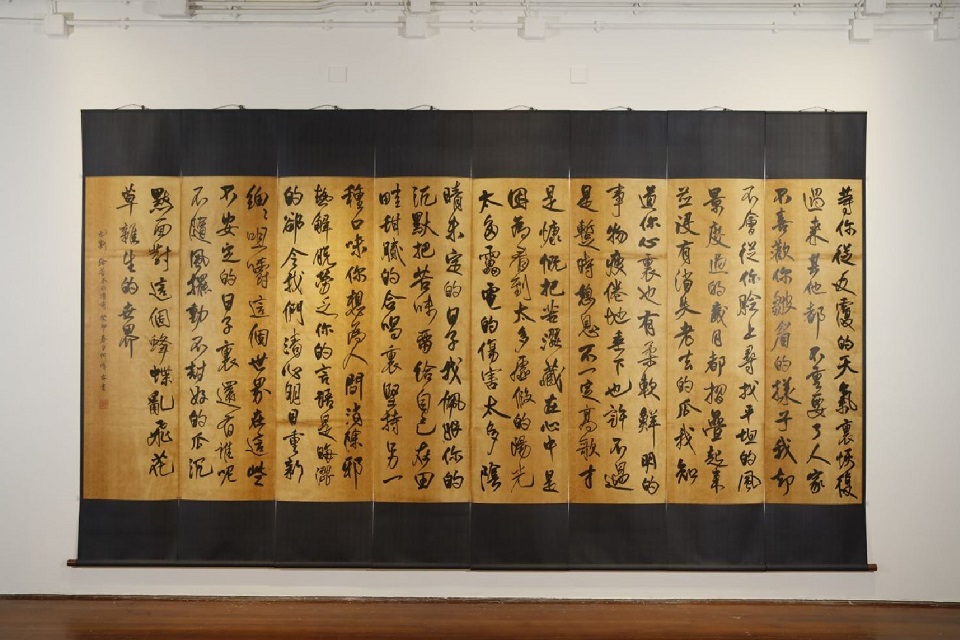 等你從反覆的天氣裏恢復
過來其他都不重要了人家
不喜歡你皺眉的樣子我却
不會從你臉上尋找平坦的風
景度過的歲月都摺疊起來
並沒有消失老去的瓜我知
道你心裏也有柔軟鮮明的
事物疲倦地垂下也許不過
是暫時憩息不一定高歌才
是慷慨把苦澀藏在心中是
因為看到太多虛假的陽光
太多雷電的傷害太多陰
晴未定的日子我佩服你的
沉默把苦味留給自己在田
畦甜膩的合唱裏堅持另一
種口味你想為人間消除邪
熱解脫勞乏你的言語是晦澀
的卻令我們清心明目重新
細〻咀嚼這個世界在這些
不安定的日子裏還有誰呢
不隨風擺動不討好的瓜沉
默面對這個蜂蝶亂飛花
草雜生的世界